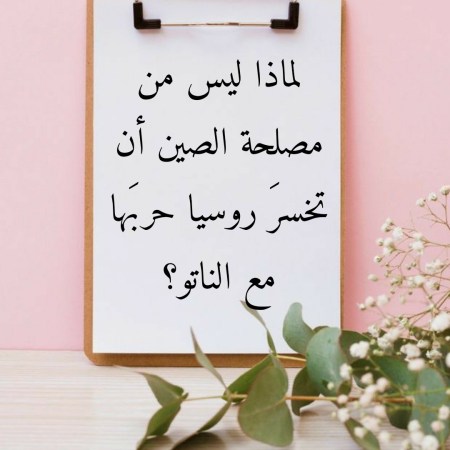 لماذا ليس من
مصلحة الصين أن
تخسرَ روسيا حربَها
مع الناتو؟